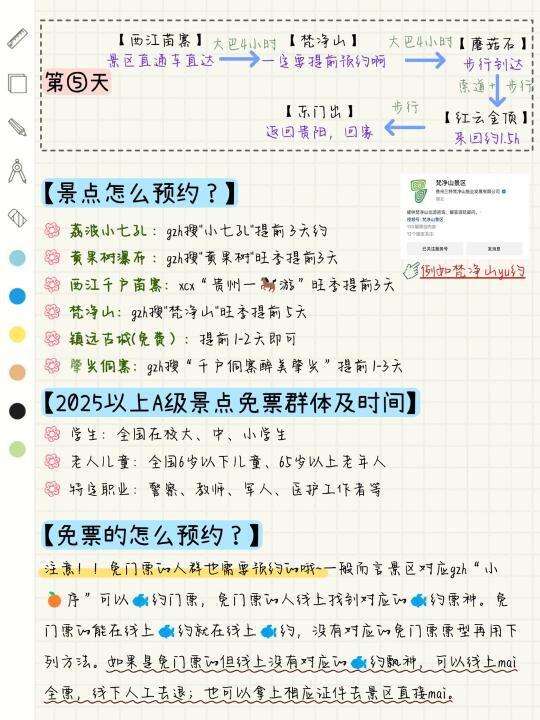 【西江苗寨】 大巴4小时 【梵净山】 大巴4小时 【蘑菇石】
景区直通车直达 一定要提前预约啊 步行到达
第⑤天 索道+步行
【东门出】 步行 【红云金顶】
返回贵阳，回家 来回约1.5h
【景点怎么预约？】
梵净山景区
贵州三特梵净山旅业发展有限公司
湖北
提供梵净山旅游咨询、解答游玩疑问。
视频号: 梵净山景区
已关注服务号 发消息
荔波小七孔：gzh搜"小七孔"提前3天约
黄果树瀑布：gzh搜"黄果树"旺季提前3天
例如梵净山yu约
西江千户苗寨：xcx“贵州一🐎游”旺季提前3天
梵净山：gzh搜"梵净山"旺季提前5天
镇远古城(免费)：提前1-2天即可
肇兴侗寨：gzh搜“千户侗寨醉美肇兴”提前1-3天
【2025以上A级景点免票群体及时间】
学生：全国在校大、中、小学生
老人儿童：全国6岁以下儿童、65岁以上老年人
特定职业：警察、教师、军人、医护工作者等
【免票的怎么预约？】
注意！！免门票的人群也需要预约的哦~一般而言景区对应gzh“小
🍊序”可以🐟约门票，免门票的人线上找到对应的🐟约票种。免
门票的能在线上🐟约就在线上🐟约，没有对应的免门票票型再用下
列方法。如果是免门票的但线上没有对应的🐟约飘种，可以线上mai
全票，线下人工去退；也可以拿上相应证件去景区直接mai。